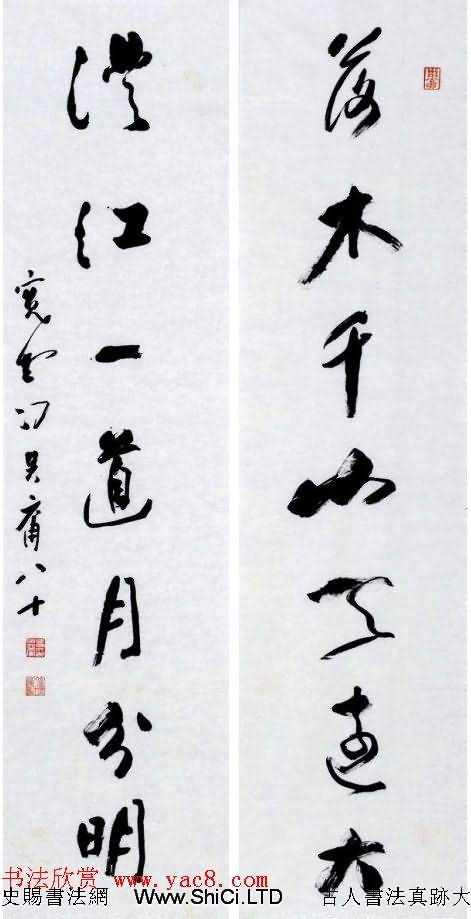 落木千山天遠大
澄江一道月分明
寬堂馮其庸八十
书法欣赏 www.yac8.com
史賜書法網 www.ShiCi.LTD 古人書法真跡大